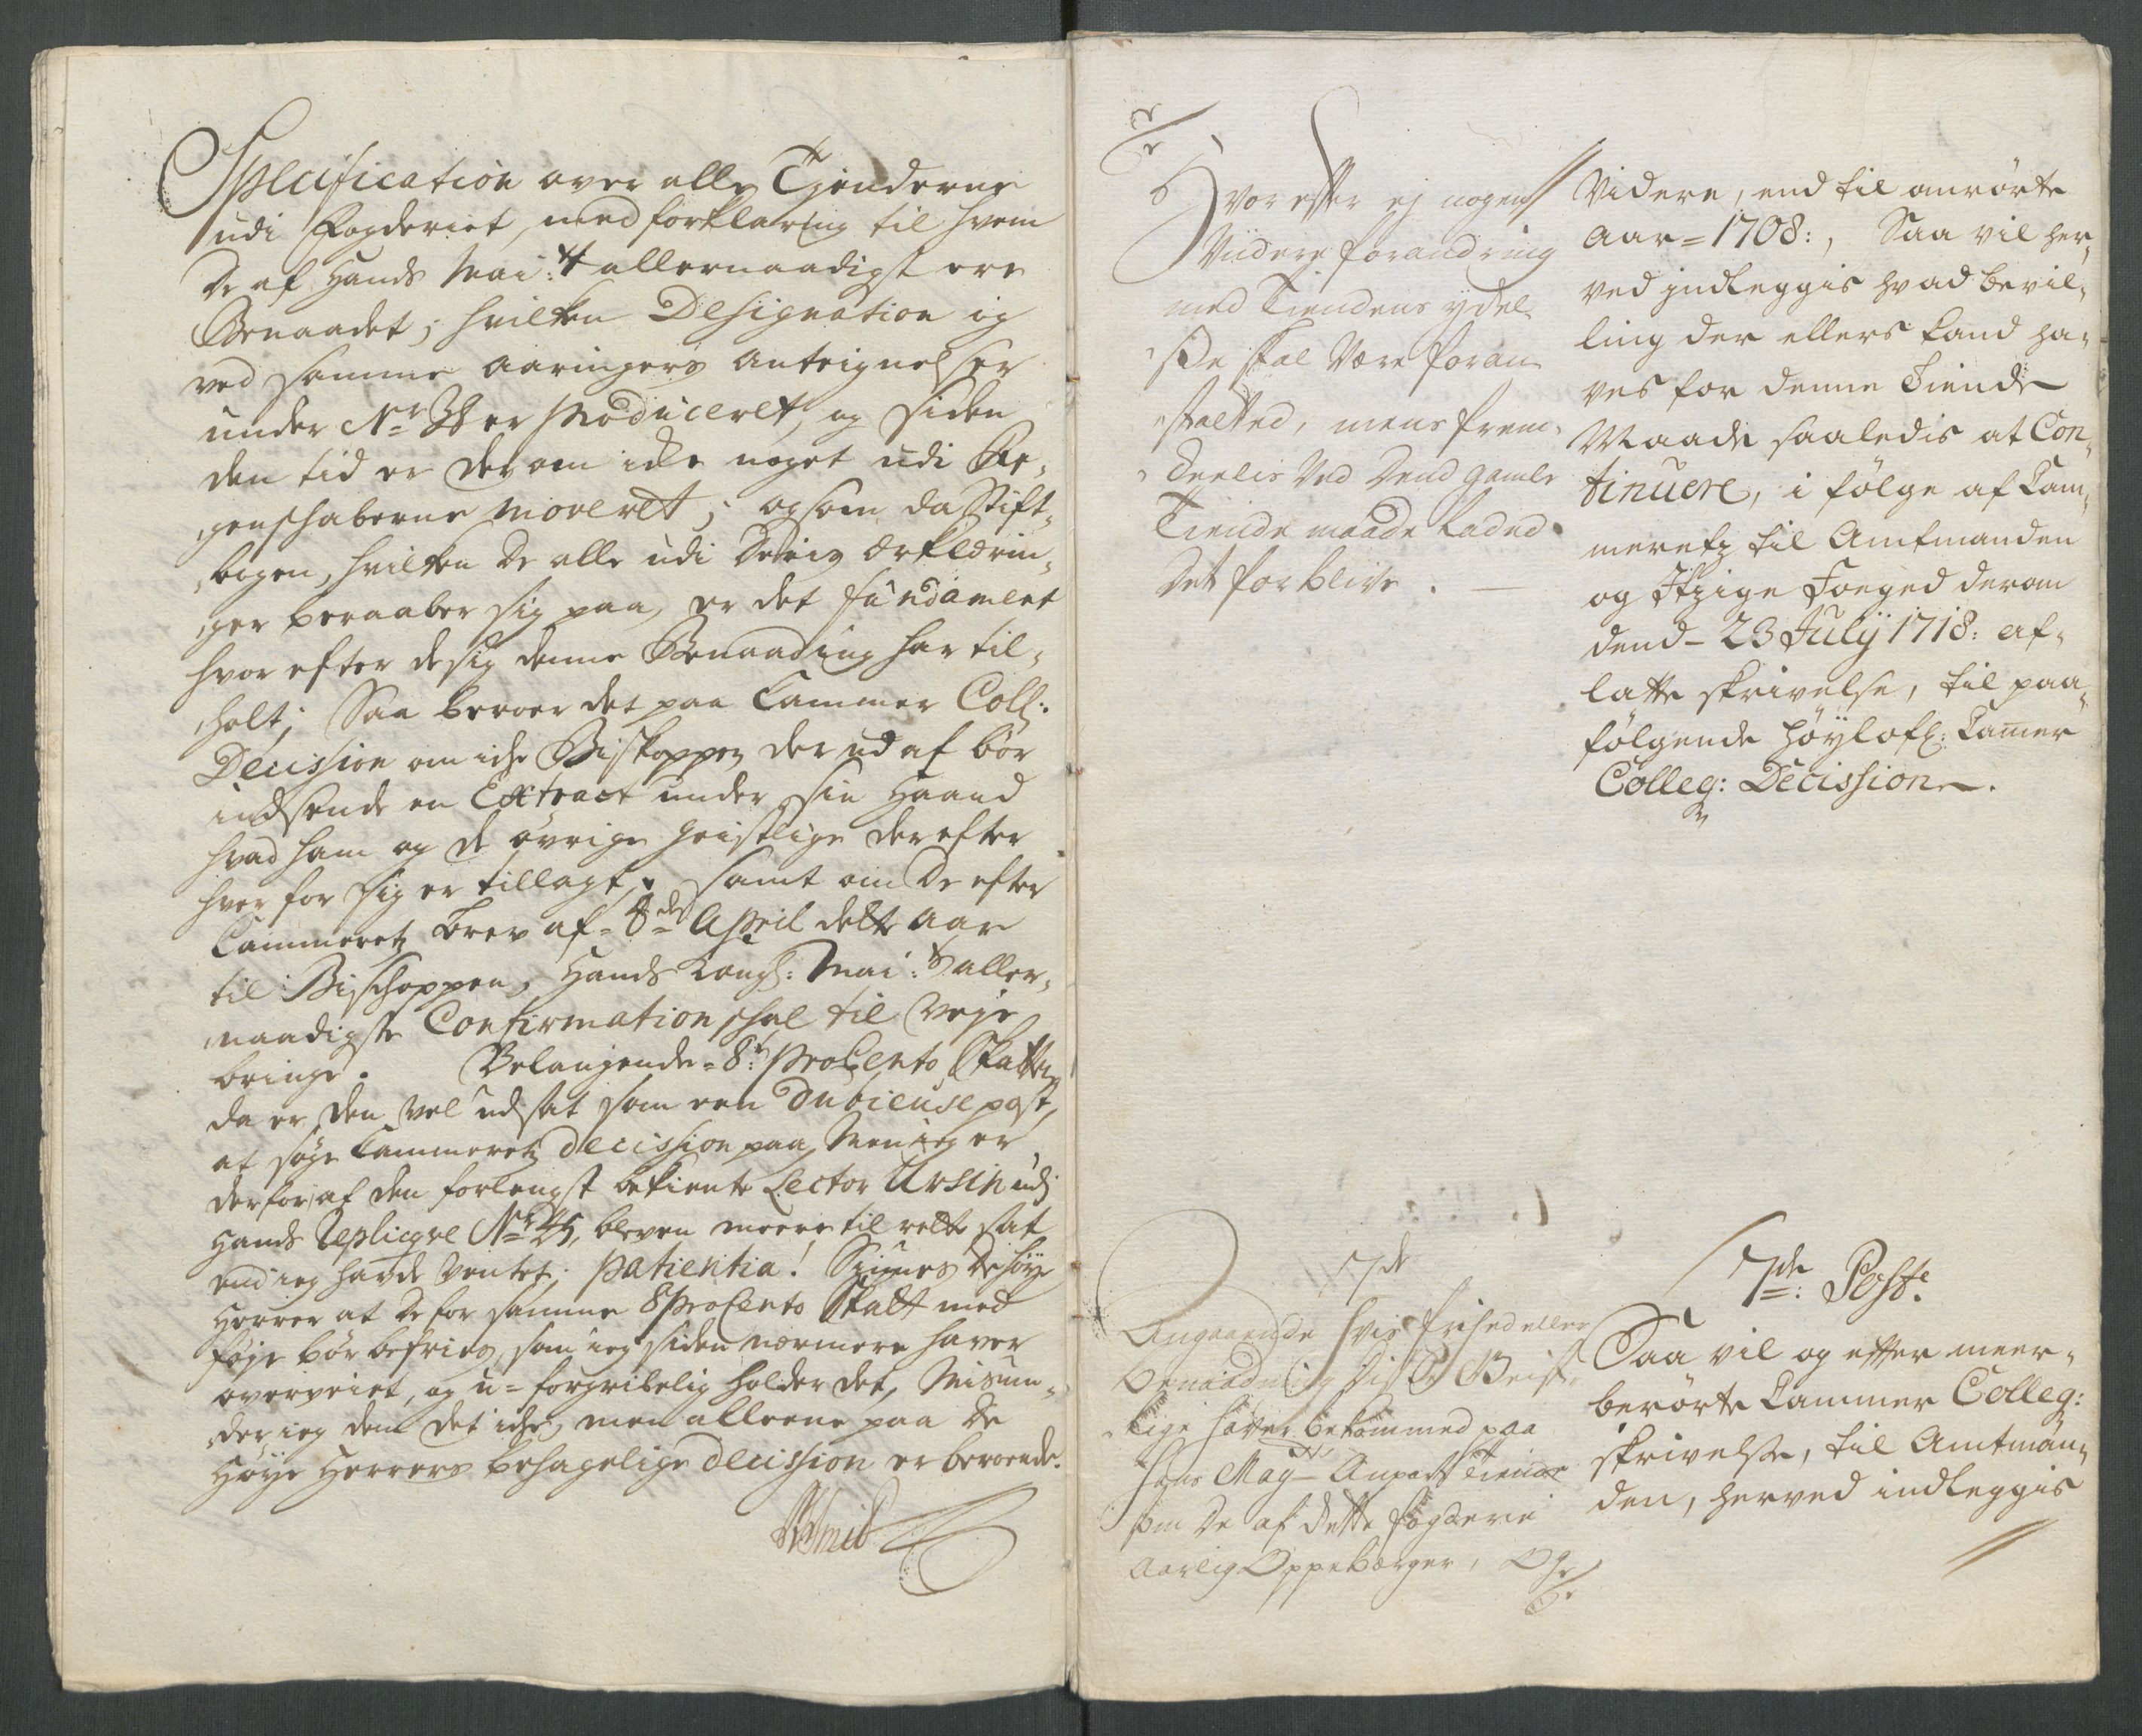 Specification over alle Tienderne
udi Fogderiet, med forklaring til hvem
de af Hands Mai:tt allernaadigst ere
Benaadet; hvilken Designation og
ved samme aaringers anteignelser
under Nr er produceret, og siden
den tid er derom icke noget udi Re-
genschaberne moveret; og som da Stift-
bogen, hvilken de alle udi deris erklærin-
ger beraaber sig paa, er det fundament
hvor efter de sig denne Benaading har til-
holt; Saa beroer det paa Cammer Coll:
Decission om icke Biskoppen der ud af bør
indsende en Extract under sin Haand
hvad ham og de øvrige Geistlige der efter
hver for sig er tillagt, samt om de efter
Cammerets brev af 8de April dette aar
til Bischoppen, Hands Kongl: Mai:tt aller-
naadigste Confirmation schal til veje
bringe. Belangende 8t proCento Skatten
da er den vel udsat som een dubieuse post,
at søge Cammerets decission paa, Men ieg er
derfor af den forlengst bekiente Lector Ursin udj
Hands Replicqve No 25, bleven meere til rette sat
end ieg hafde ventet; patientia! Siunes de høye
Herrer at de for samme 8 proCento Skatt med
føye bør befries, som ieg siden nærmere haver
overveiet, og u-forgribelig holder det, Misun-
der ieg dem det icke, men alleene paa de
Høye Herrers behagelige decission er beroende.
Hvor efter ej nogen
Viidere forandring
med Tiendens ydel-
se skal være foran-
stalted, mens frem-
deelis ved dend gamle
Tiende maade laded
det forblive.
Videre, end til anrørte
Aar = 1708:, Saa vil her-
ved indleggis hvad bevil-
ling der ellers kand ha-
ves for denne Tiende
Maade saaledis at Con-
tinuere, i følge af Cam-
merets til Amtmanden
og Itzige Foeged derom
dend 23 Julij 1718: af-
latte skrivelse, til paa-
følgende Höylofl: Camer
Colleg: Decission.
7de
Angaaende hvis frihed eller
benaadning de Geist-
lige hafver bekommed paa
hans May Anpart tiende
som de af dette fogderie
aarlig Oppebærger, Og
7de: Post:
Saa vil og efter meer-
berørte Cammer Colleg:
skrivelse, til Amtman-
den, herved indleggis